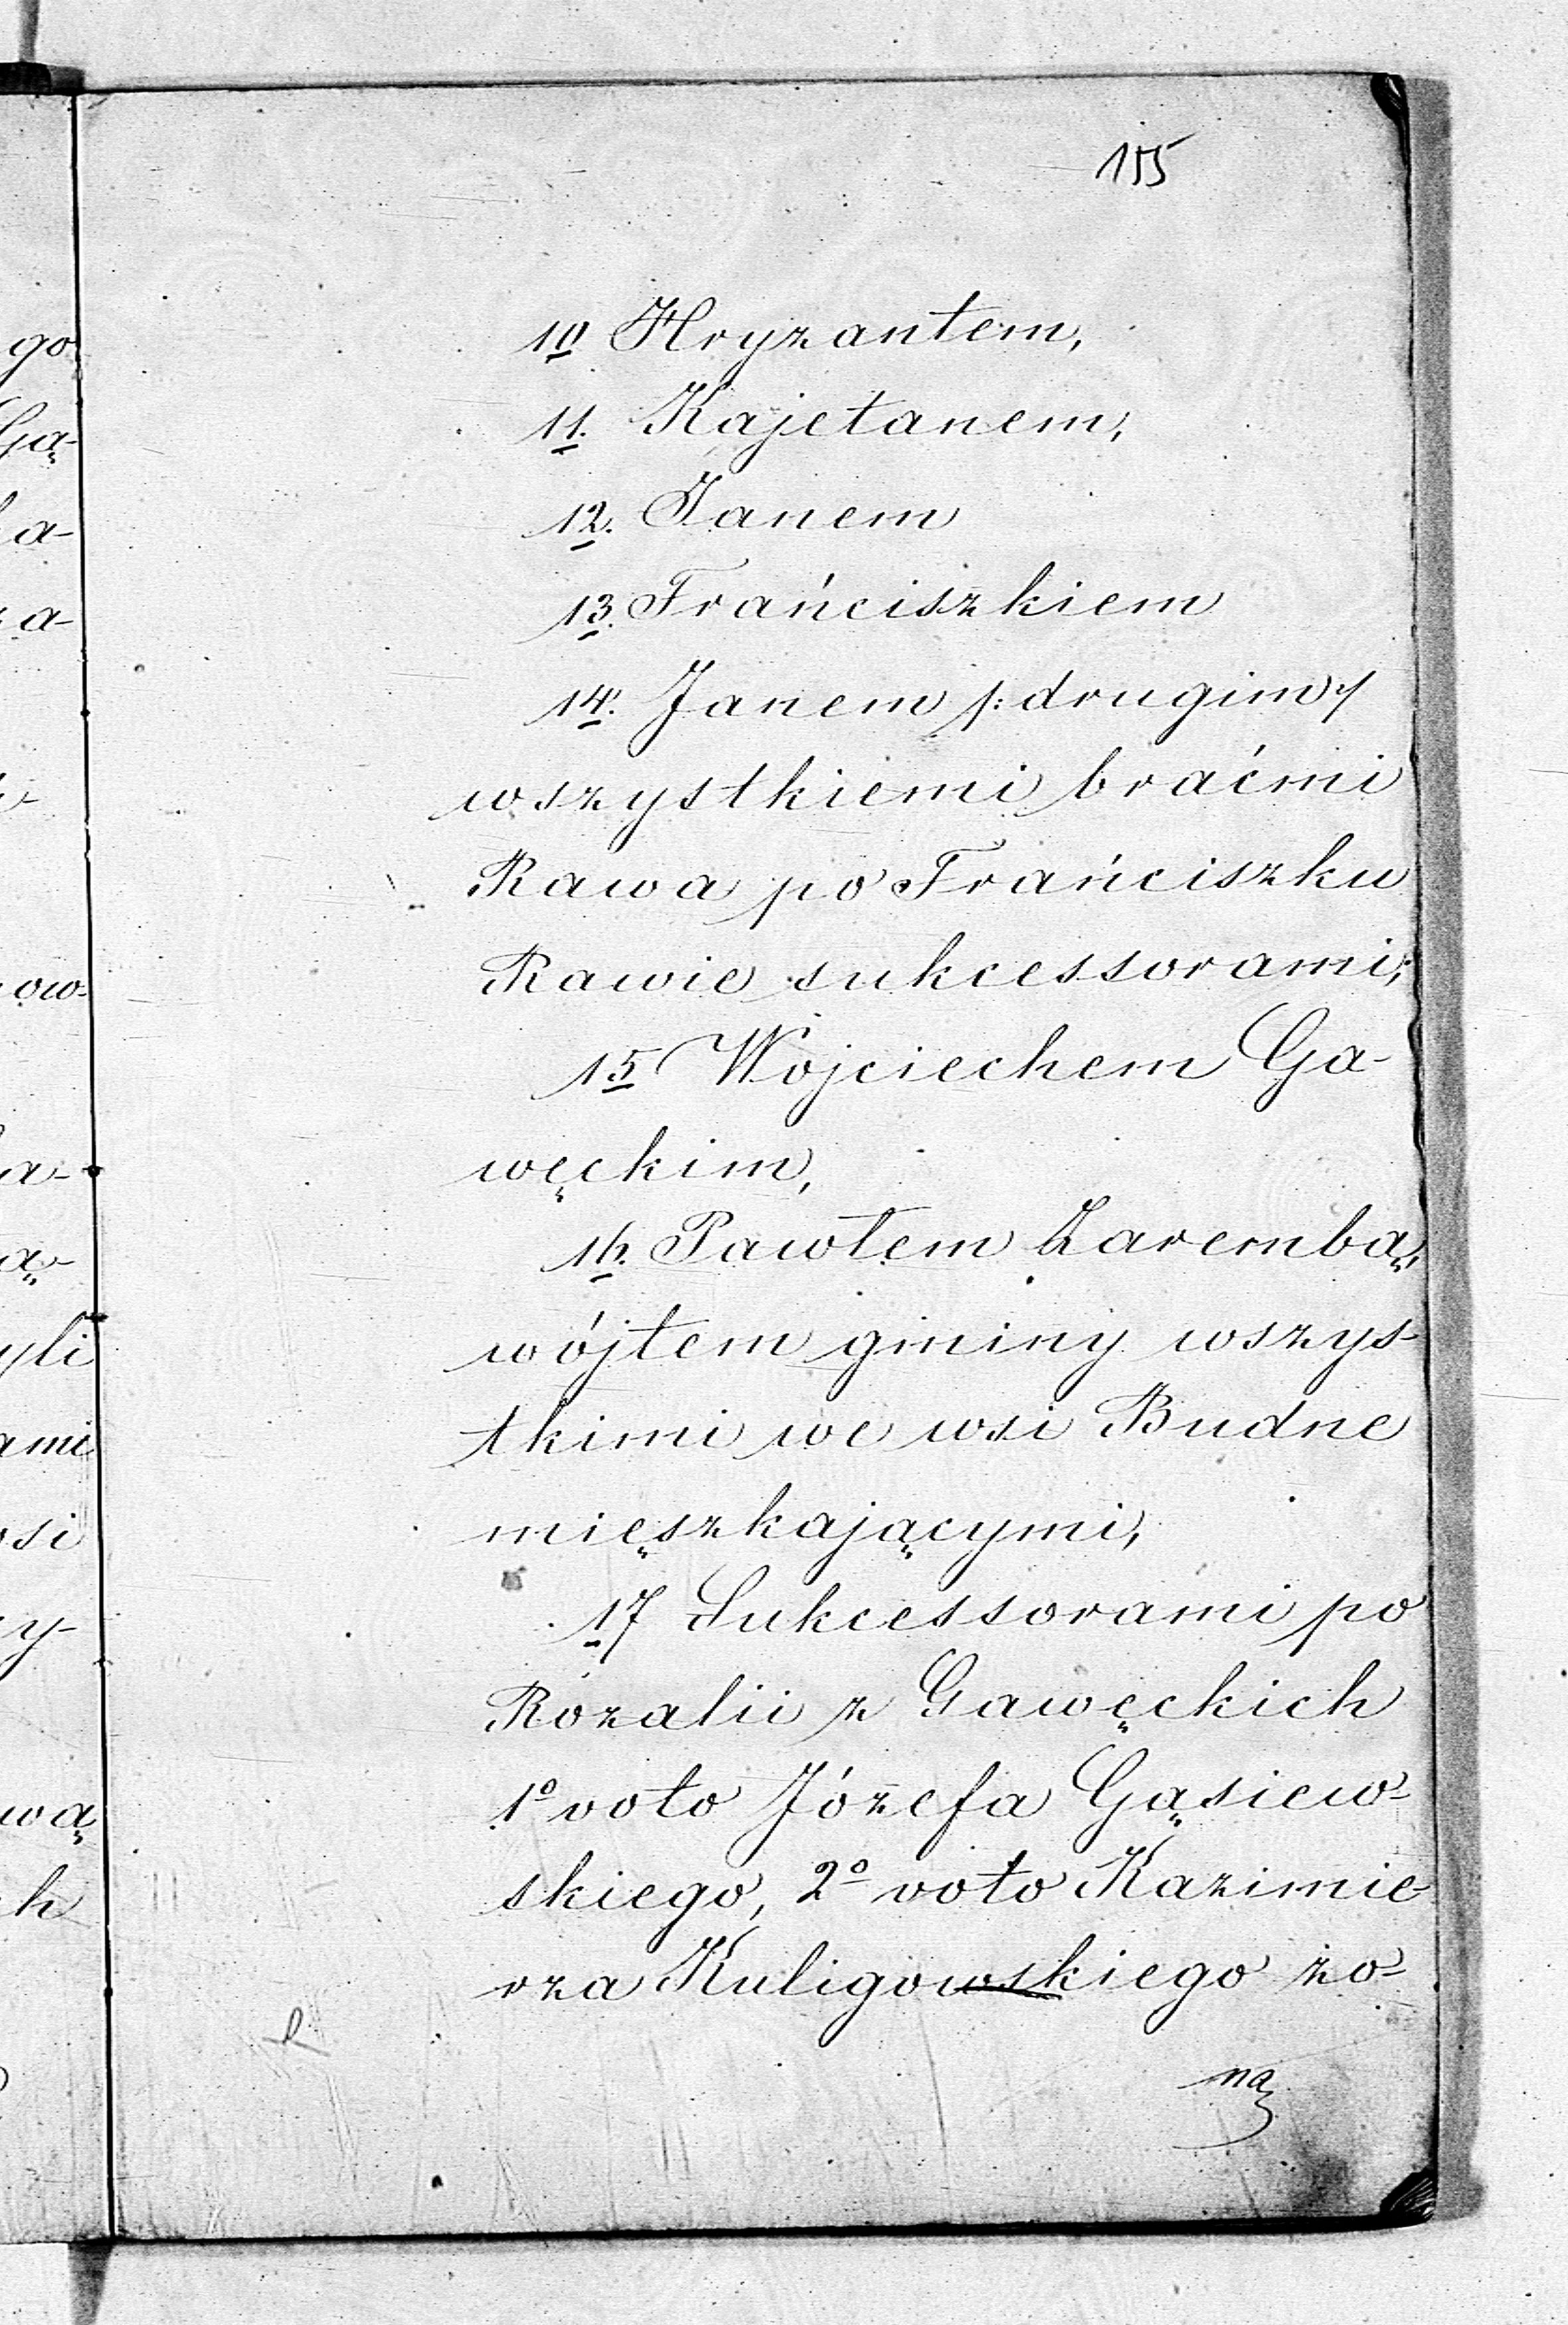 155
10 Hryzantem,
11. Kajetanem,
12. Janem
13. Frańciszkiem
14. Janem /:drugim:/
wszystkiemi braćmi
Rawa po Frańciszku
Rawie sukcessorami;
15 Wojciechem Ga-
węckim,
16. Pawłem Zarembą,
wójtem gminy wszys-
tkimi we wsi Budne
mięszkającymi,
17 Sukcessorami po
Rozalii z Gawęckich
1º voto Józefa Gąsiew-
skiego, 2º voto Kazimie-
rza Kuligowskiego żo-
ną
go
Ga-
a-
a-
ow-
a-
ą-
yli
ami
osi
y-
wą
h